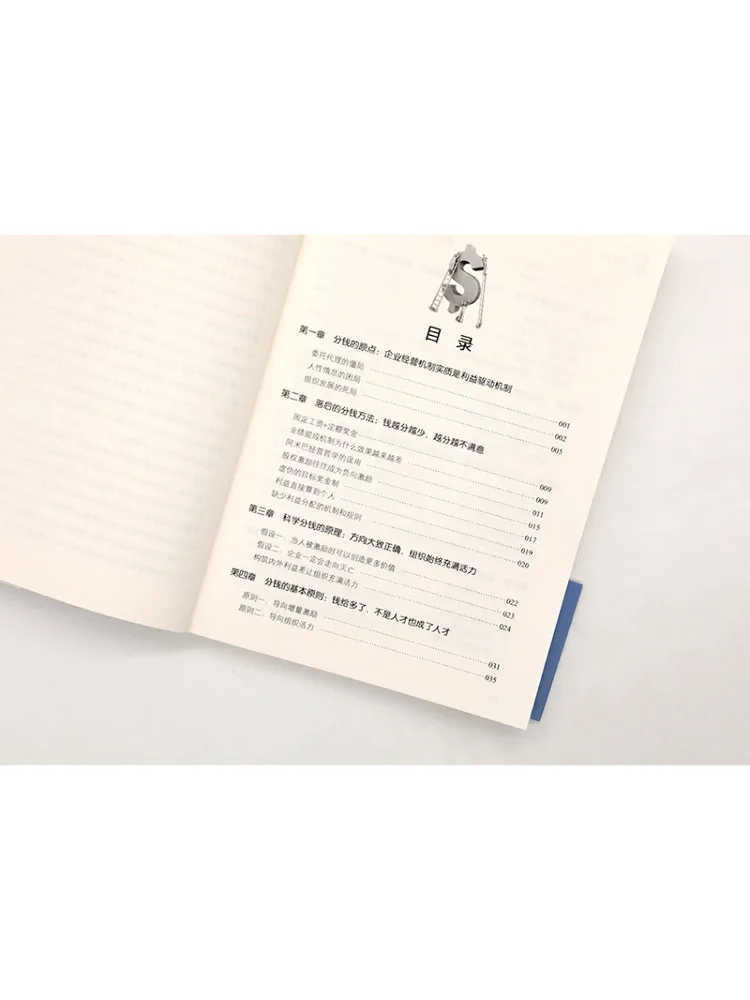 $
目 录
第一章 分钱的原点：企业经营机制实质是利益驱动机制
委托代理的僵局 001
人性惰怠的困局 002
组织发展的死局 005
第二章 落后的分钱方法：钱越分越少，越分越不满意
固定工资+定额奖金 009
业绩提成机制为什么效果越来越差 009
阿米巴经营哲学的误用 011
股权激励往往成为负向激励 015
虚伪的目标奖金制 017
利益直接算到个人 019
缺少利益分配的机制和规则 020
第三章 科学分钱的原理：方向大致正确，组织始终充满活力
假设一：当人被激励时可以创造更多价值 022
假设二：企业一定会走向灭亡 023
构筑内外利益差让组织充满活力 024
第四章 分钱的基本原则：钱给多了，不是人才也成了人才
原则一：导向增量激励 031
原则二：导向组织活力 035